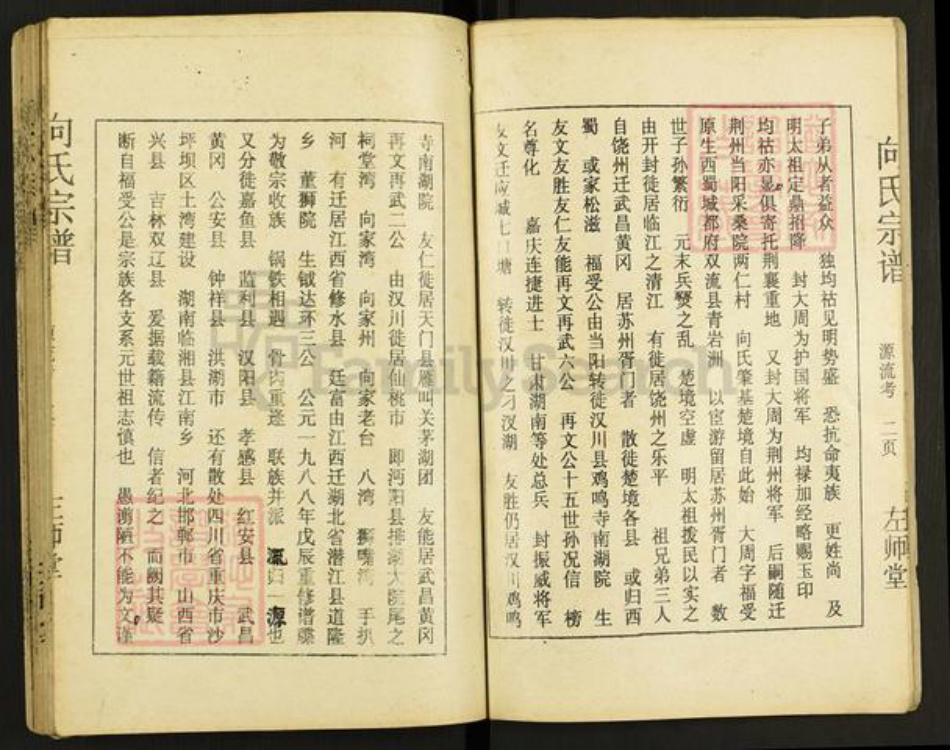 向氏宗谱
源流考 二页
左师堂
子弟从者益众 独均祜见明势盛 恐抗命夷族 更姓尚 及
明太祖定鼎招降 封大周为护国将军 均禄加经略赐玉印
均祜亦显俱寄托荆襄重地 又封大周为荆州将军 后嗣随迁
荆州当阳采桑院两仁村 向氏肇基楚境自此始 大周字福受
原生西蜀城都府双流县青岩洲 以宦游留居苏州胥门者 数
世子孙繁衍 元末兵燹之乱 楚境空虚 明太祖拨民以实之
由开封徒居临江之清江 有徒居饶州之乐平 祖兄弟三人
自饶州迁武昌黄冈 居苏州胥门者 散徒楚境各县 或归西
蜀 或家松滋 福受公由当阳转徒汉川县鸡鸣寺南湖院 生
友文友胜友仁友能再文再武六公 再文公十五世孙况信 榜
名尊化 嘉庆连捷进士 甘肃湖南等处总兵 封振威将军
友文迁应城七口塘 转徒汉川之刁汊湖 友胜仍居汉川鸡鸣
寺南湖院 友仁徒居天门县雁叫关茅湖团 友能居武昌黄冈
再文再武二公 由汉川徒居仙桃市 即沔阳县排湖大院尾之
祠堂湾 向家湾 向家州 向家老台 八湾 狮嘴湾 手扒
河 有迁居江西省修水县 廷富由江西迁湖北省潜江县道隆
乡 董狮院 生钺达环三公 公元一九八八年戊辰重修谱牒
为敬宗收族 锅铁相遇 骨肉重逢 联族并派 瀛归一源也
又分徒嘉鱼县 监利县 汉阳县 孝感县 红安县 武昌
黄冈 公安县 钟祥县 洪湖市 还有散处四川省重庆市沙
坪坝区土湾建设 湖南临湘县江南乡 河北邯郸市 山西省
兴县 吉林双辽县 爱据载籍流传 信者纪之 而阙其疑
断自福受公是宗族各支系元世祖志慎也 愚谫陋不能为文谨
向氏宗谱
FamilySearch